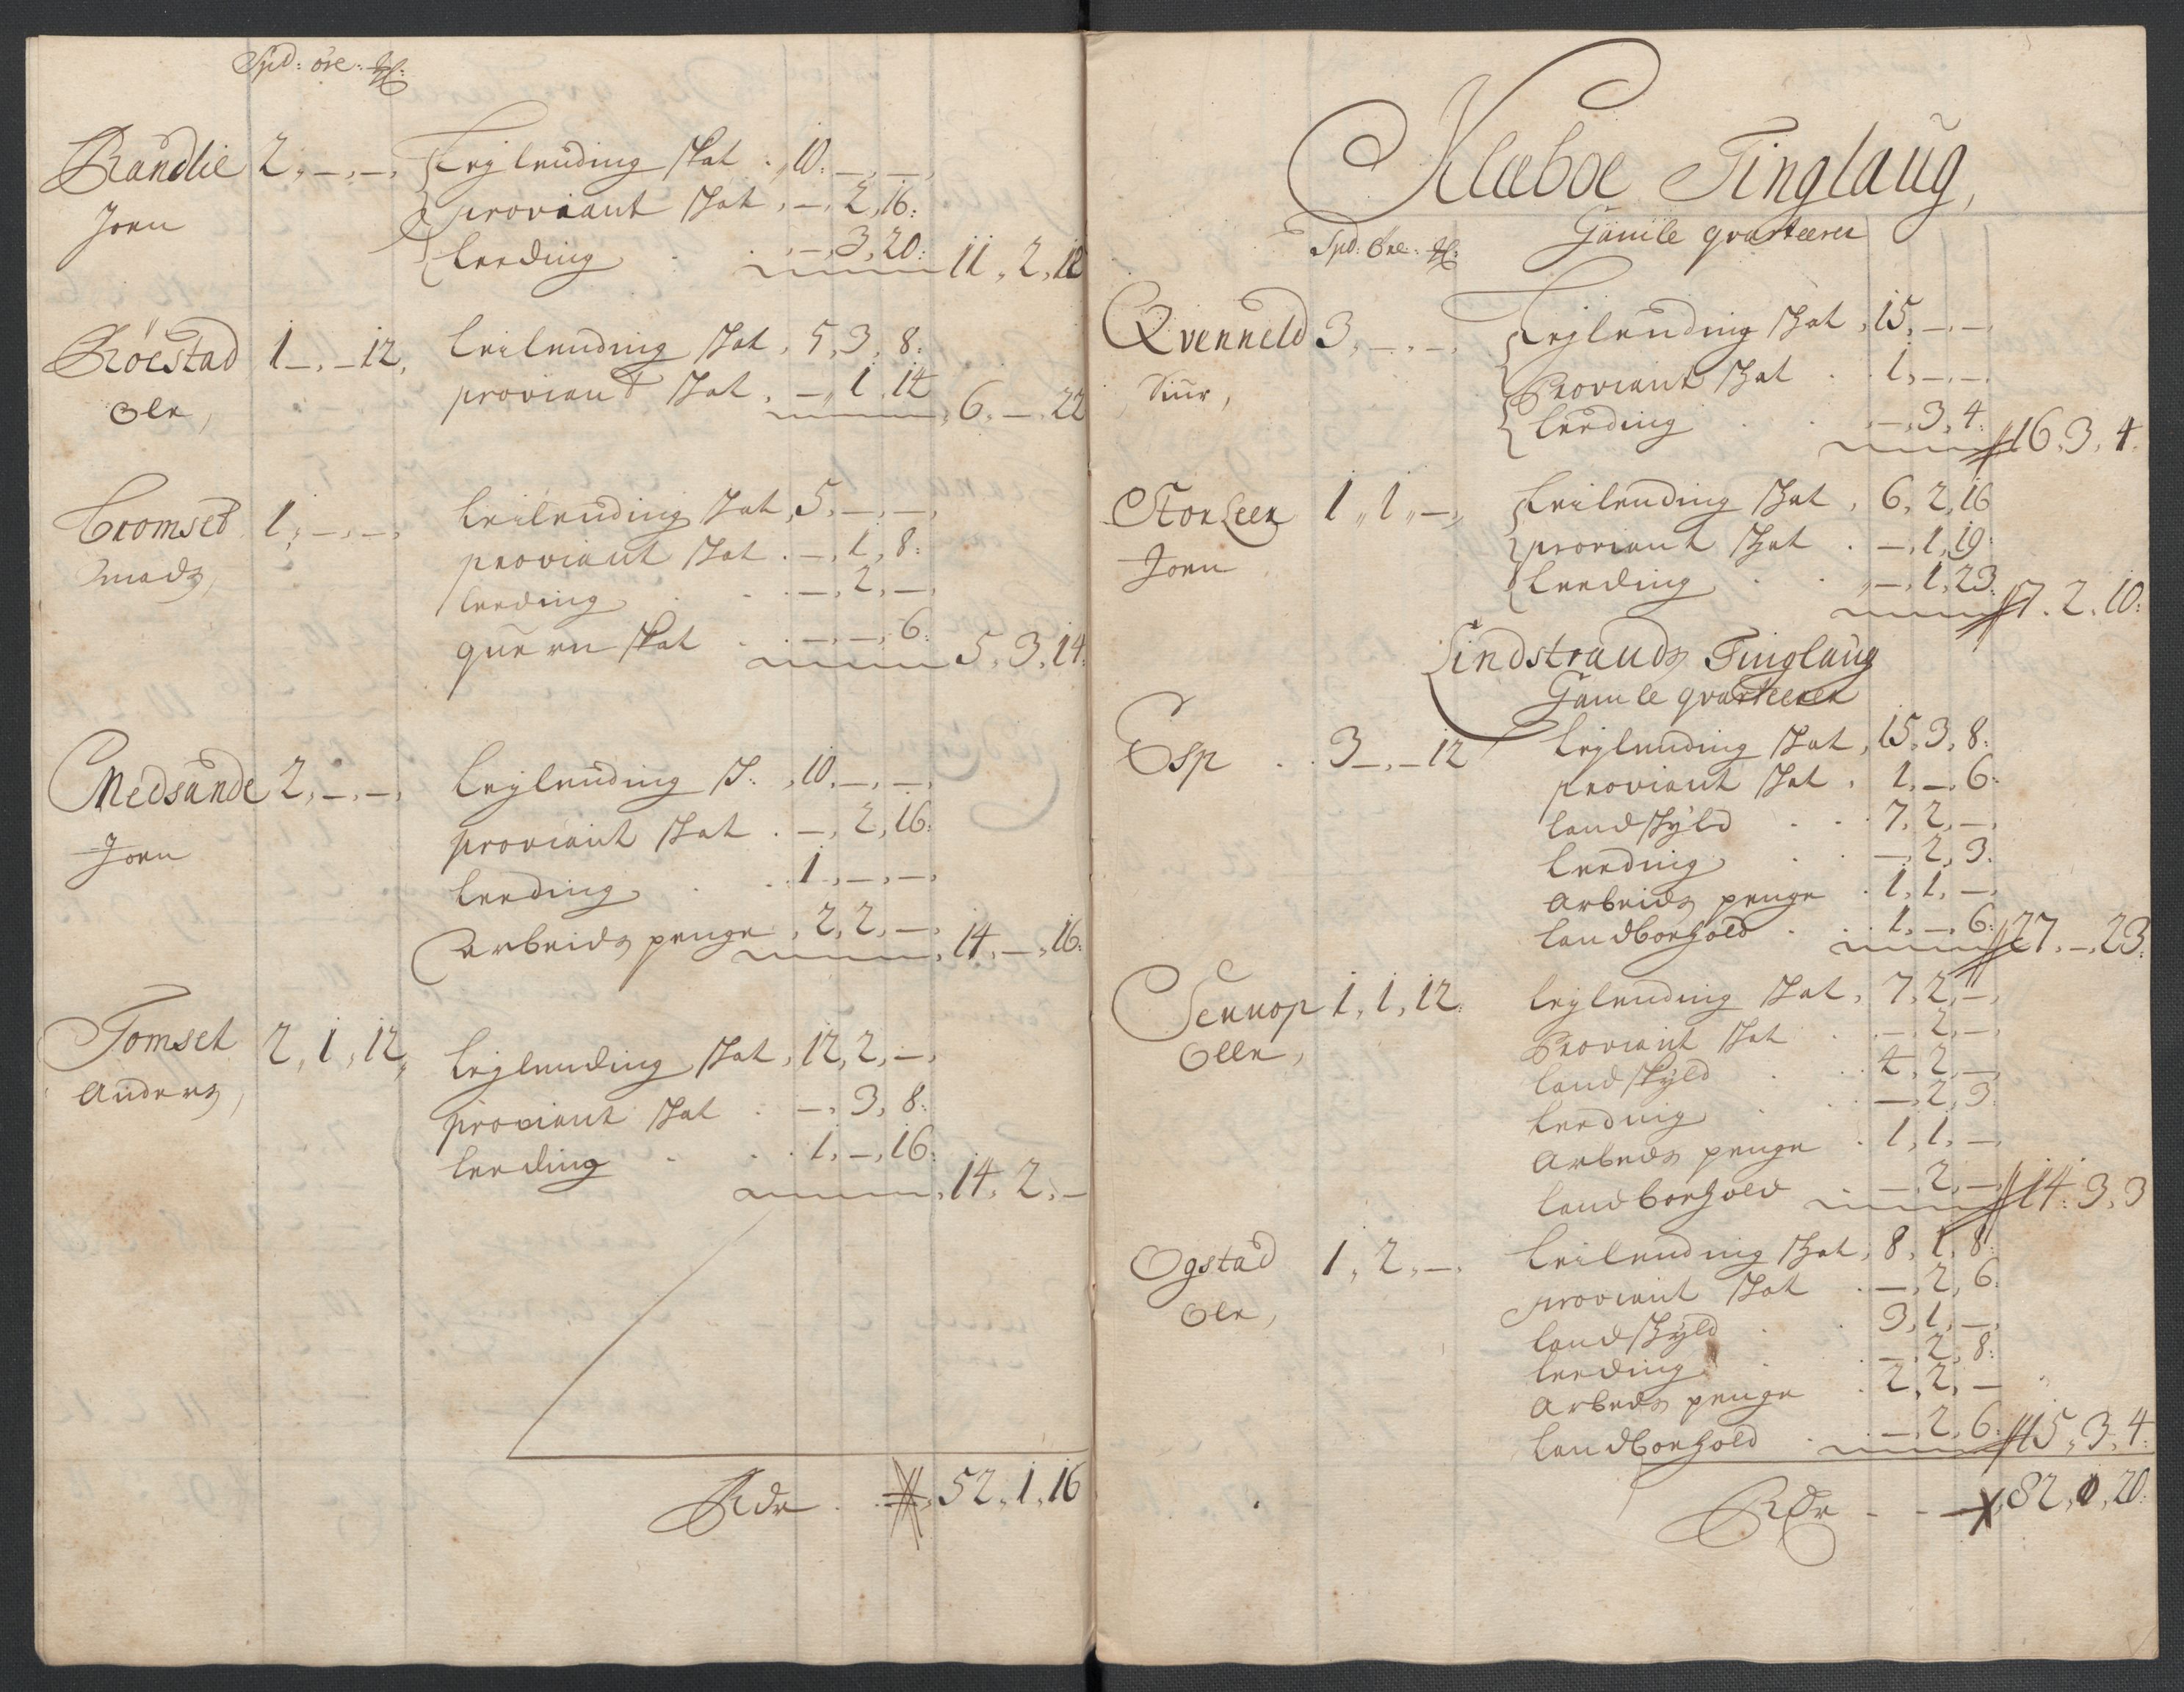 Spd: öre: ℔:
Randlie 2,—,—, Lejlending skat . 10:—,—,
Joen proviant skat, —, 2, 16:
Leeding . . —, 3, 20: 11, 2, 12
Röestad 1—,—12, Leilending skat, 5, 3, 8:
Ole, proviant skat, —, 1. 14 6,—. 22
Tromset 1,—,—, Leilending skat, 5,—,—,
mads, proviant skat . —, 1, 8:
Leeding . . —, 2,—,
quern skat . . —,—, 6: 5, 3, 14:
Medsunde 2,—,—, Lejlending s: , 10,—,—,
Joen proviant skat . —, 2, 16:
Leeding . . 1,—,—,
Arbeids penge, 2, 2,—, 14,—, 16:
Tomset 2, 1, 12, Lejlending skat, 12, 2,—,
Anders, proviant skat . —, 3, 8:
Leeding . . 1,—, 16: 14, 2,—
Rdr . . 52, 1, 16
Klæboe Tinglaug,
Gamle qvarteerer
Spd: Öre: ℔:
Qvenneld 3,—,—, Lejlending skat, 15,—,—,
Siur, Proviant skat . . 1,—,—,
Leeding . . —, 3, 4: 16, 3, 4.
StorLeer 1,, 1,,—,, Leilending skat, 6, 2, 16
Joen proviant skat . —, 1, 19:
Leeding . . —, 1, 23: 7. 2. 10:
Sindstrands Tinglaug
Gamle qvarteerer
Esp . . 3—,—12 Lejlending skat, 15, 3, 8:
proviant skat . 1,—, 6:
landskyld . . 7, 2,—,
Leeding . . —, 2, 3:
Arbeids penge . 1, 1,—,
landborhold . . 1,—, 6: 27,—, 23:
Sennop 1, 1, 12: Lejlending skat, 7, 2,—,
Olle, Proviant skat . —, 2,—,
landskyld . . 4, 2,—,
Leeding . . —, 2, 3:
Arbeds penge . 1, 1,—,
landborhold . —, 2,—, 14: 3, 3
Ogstad 1,, 2,,—. Leilending skat, 8, 1, 8:
Ole, proviant skat . —, 2, 6:
landskyld . . 3, 1,—,
Leeding . . —, 2, 8:
Arbeds penge . 2, 2,—
landborhold . —, 2, 6: 15, 3, 4:
Rdr . . 82, 0, 20: